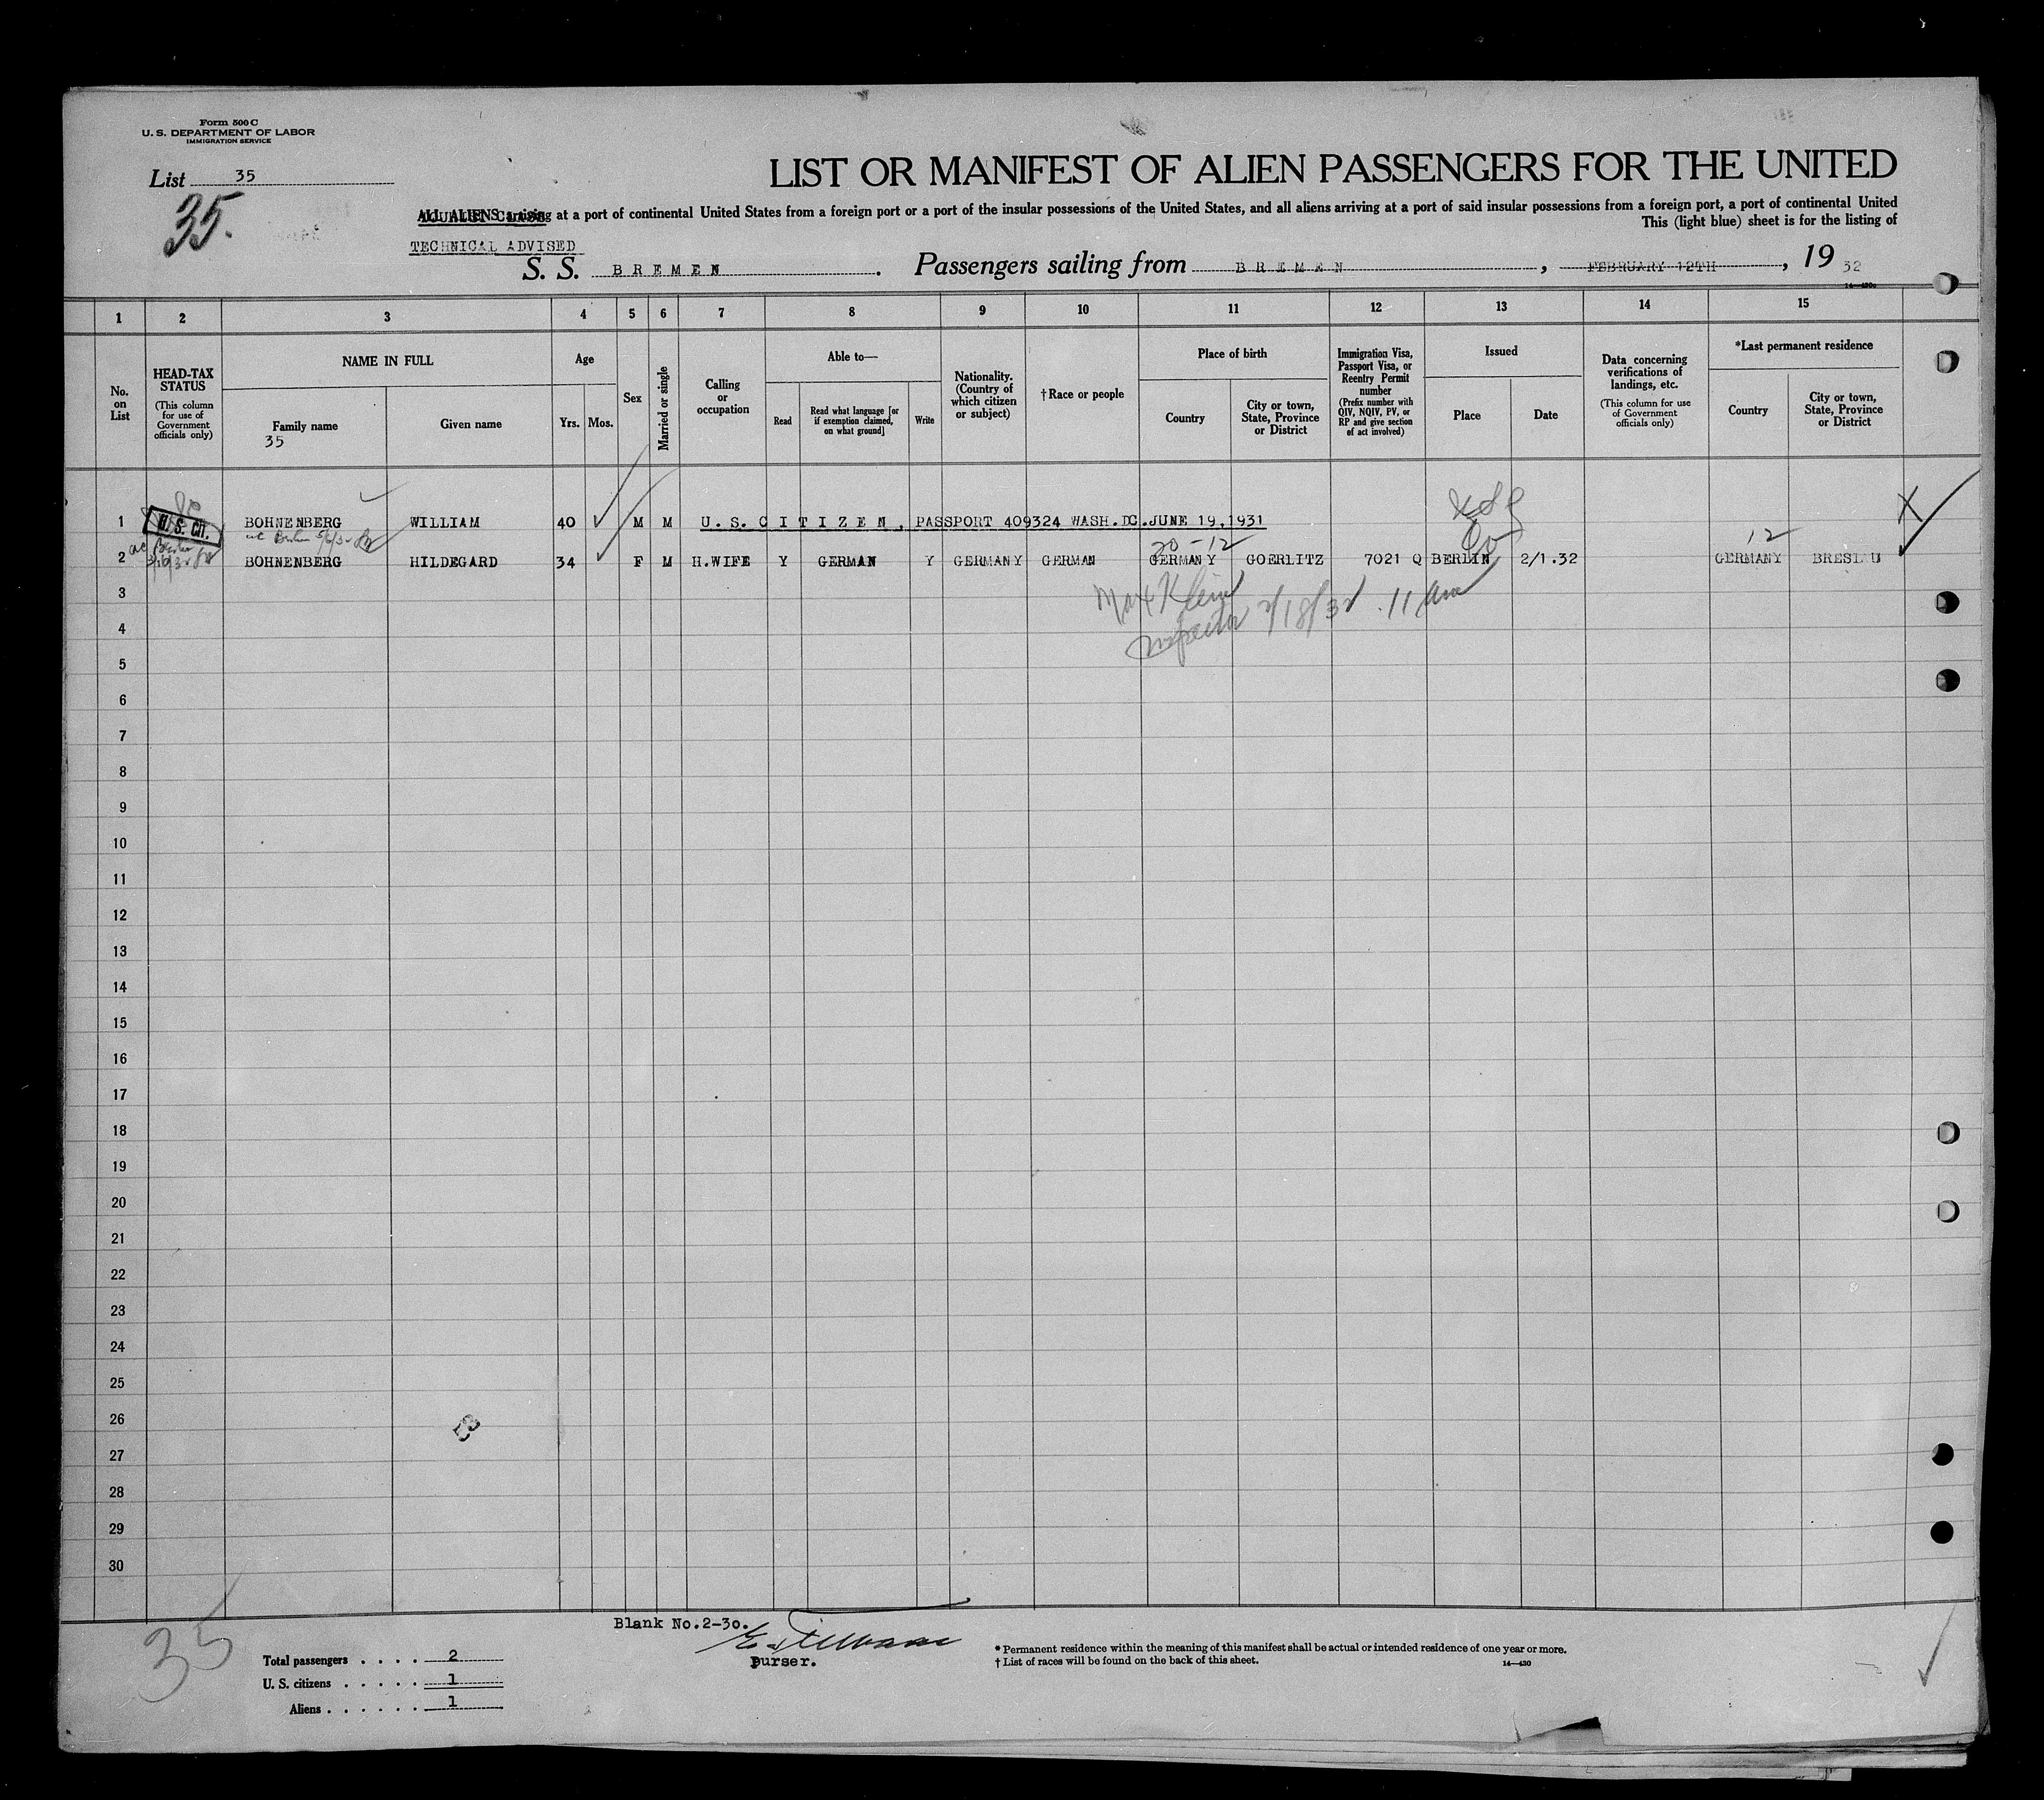 Form 500 C
U. S. DEPARTMENT OF LABOR
IMMIGRATION SERVICE
List 35
35.
LIST OR MANIFEST OF ALIEN PASSENGERS FOR THE UNITED
ALL ALIENS arriving at a port of continental United States from a foreign port or a port of the insular possessions of the United States, and all aliens arriving at a port of said insular possessions from a foreign port, a port of continental United
This (light blue) sheet is for the listing of
TECHNICAL ADVISED
S. S. BREMEN. Passengers sailing from BREMEN, FEBRUARY 12TH, 19 32
14—430a
1 2 3 4 5 6 7 8 9 10 11 12 13 14 15
No. on List
HEAD-TAX STATUS
(This column for use of Government officials only)
NAME IN FULL
Family name
35
Given name
Age
Yrs. Mos.
Sex
Married or single
Calling or occupation
Able to—
Read
Read what language [or if exemption claimed, on what ground]
Write
Nationality. (Country of which citizen or subject)
†Race or people
Place of birth
Country
City or town, State, Province or District
Immigration Visa, Passport Visa, or Reentry Permit number
(Prefix number with QIV, NQIV, PV, or RP and give section of act involved)
Issued
Place
Date
Data concerning verifications of landings, etc.
(This column for use of Government officials only)
*Last permanent residence
Country
City or town, State, Province or District
1 U. S. Cit. BOHNENBERG WILLIAM 40 M M U. S. CITIZEN, PASSPORT 409324 WASH. DC. JUNE 19, 1931
20-12
12
2 BOHNENBERG HILDEGARD 34 F M H.WIFE Y GERMAN Y GERMANY GERMAN GERMANY GOERLITZ 7021 Q BERLIN 2/1.32 GERMANY BRESLAU
3
Max Klein
4
2/18/32 11 am
5
6
7
8
9
10
11
12
13
14
15
16
17
18
19
20
21
22
23
24
25
26
27
28
29
30
35
Blank No.2-30.
purser.
Total passengers . . . . 2
U. S. citizens . . . . . 1
Aliens . . . . . . 1
* Permanent residence within the meaning of this manifest shall be actual or intended residence of one year or more.
† List of races will be found on the back of this sheet.
14—430